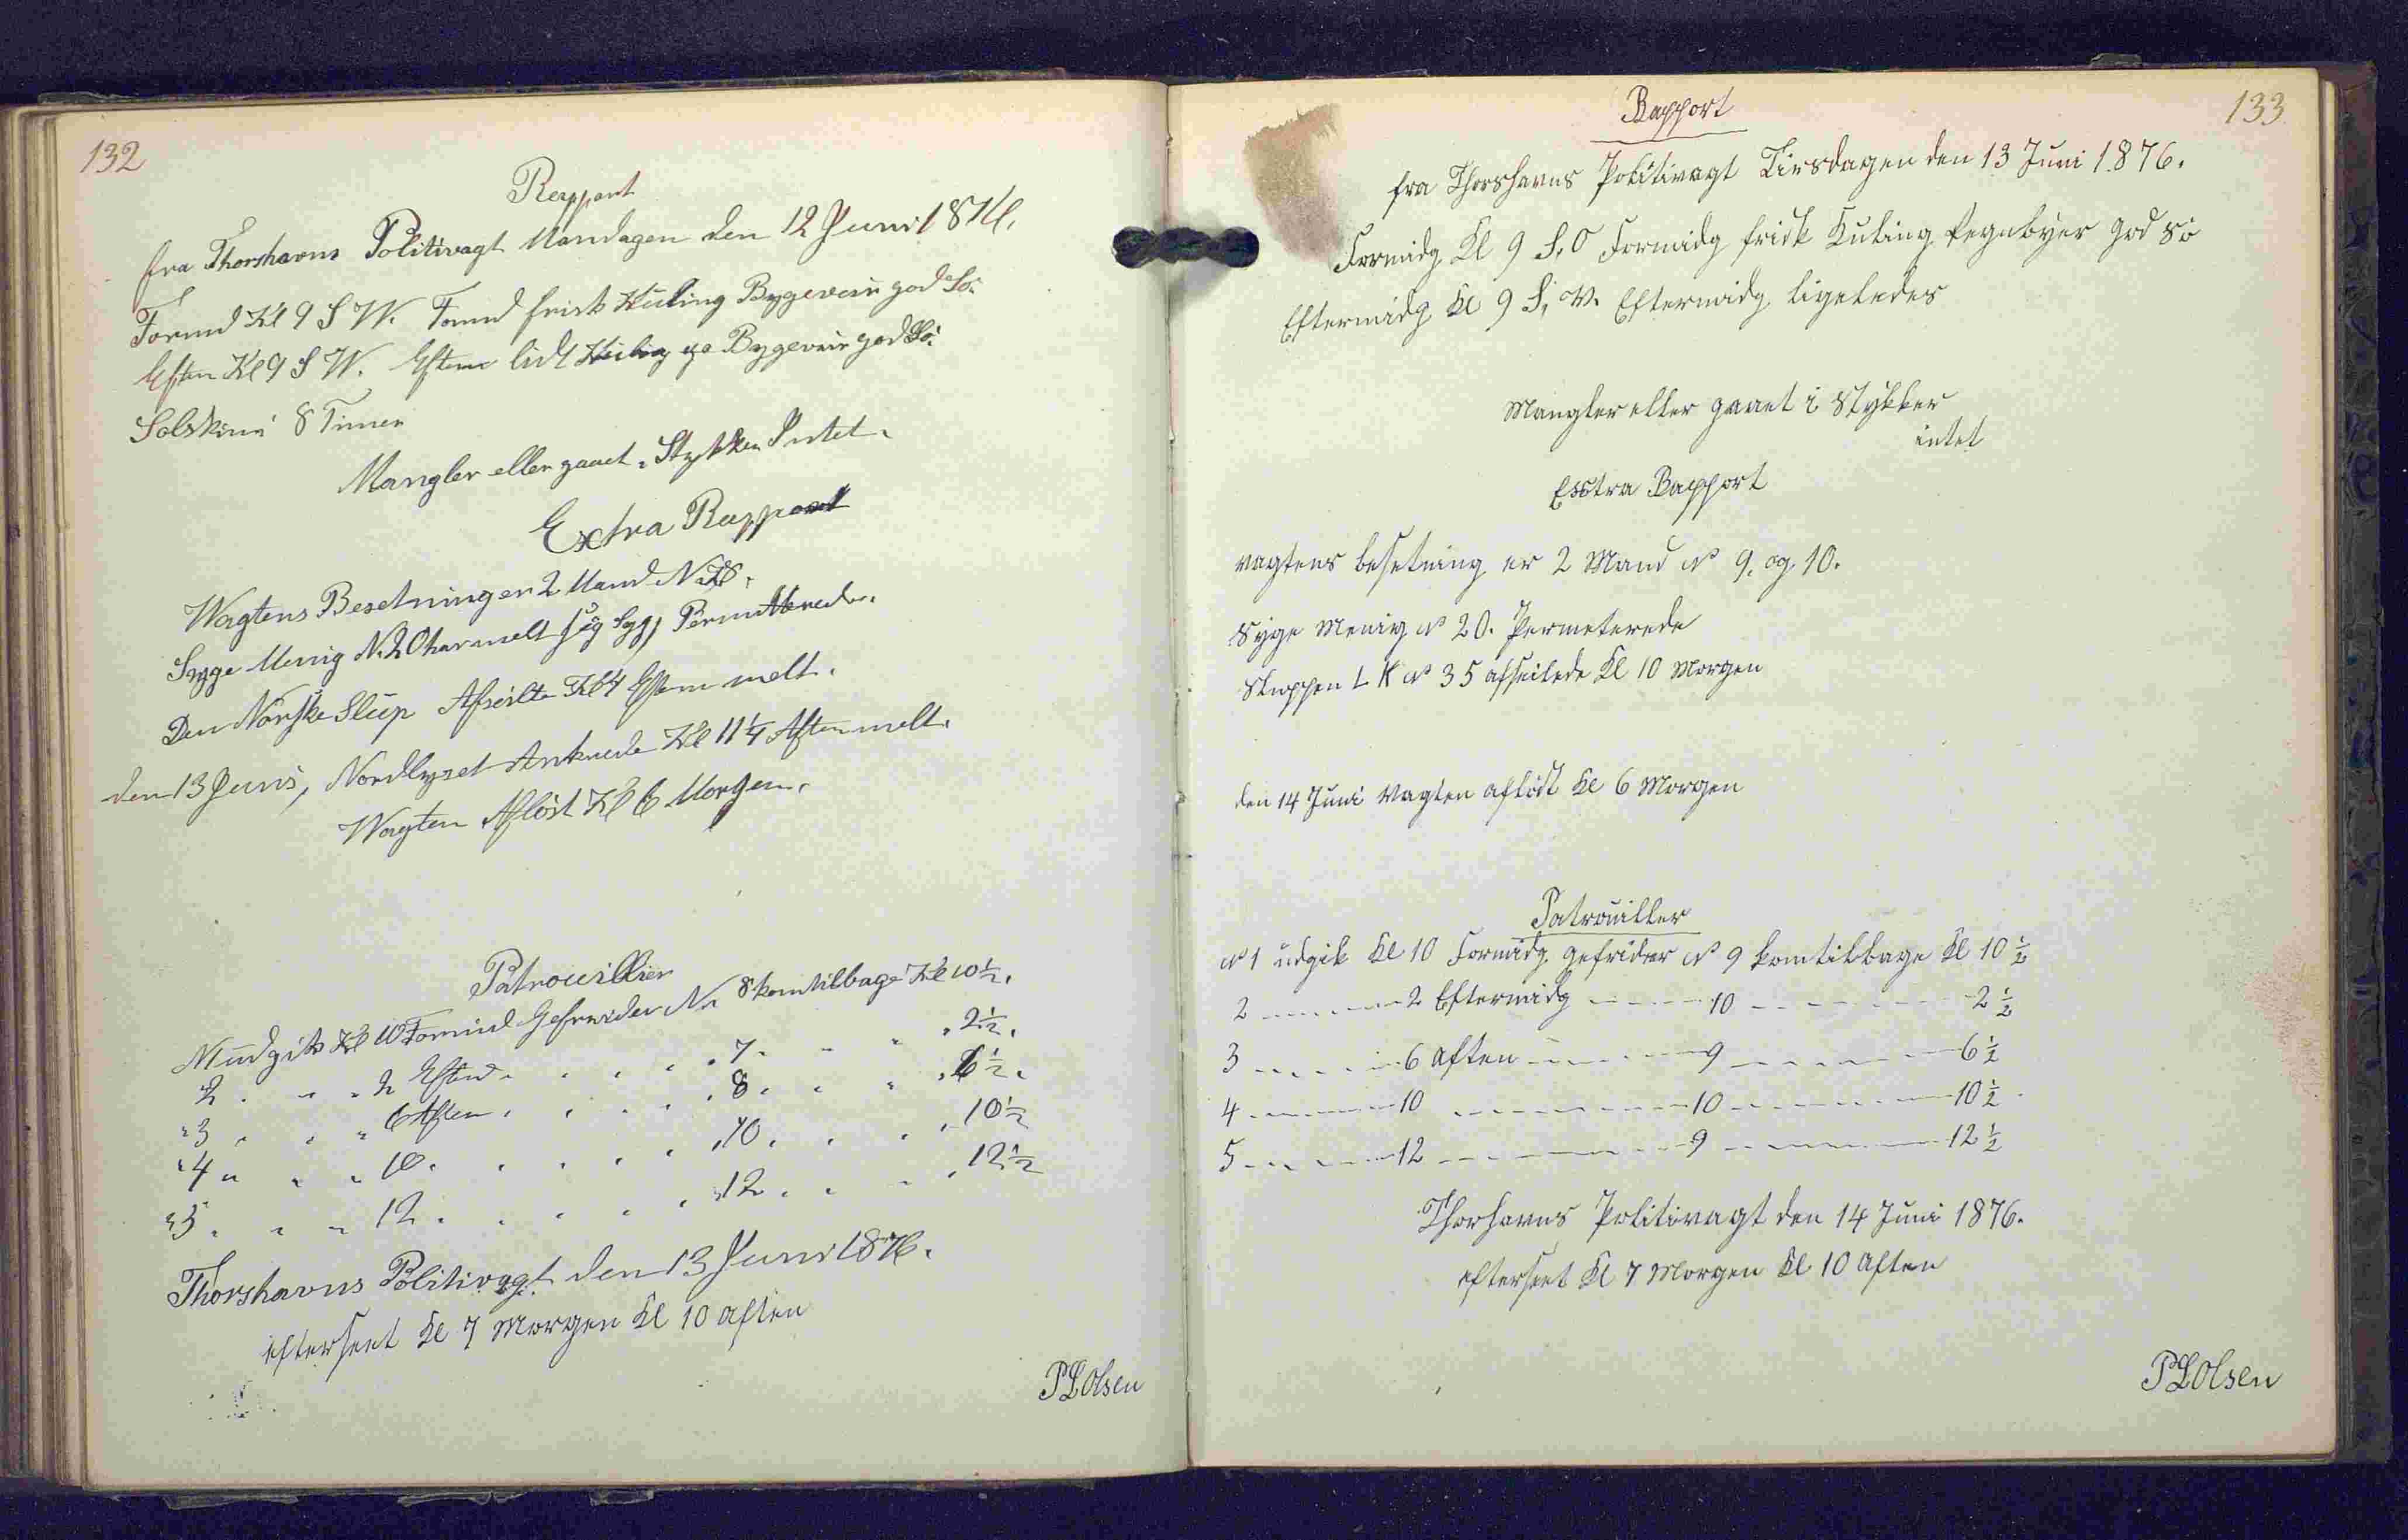 132
Rapport
fra Thorshavns Politivagt Mandagen den 12 Juni 1876.
Formd Kl 9 S W. Formd frisk Kuling Bygeveir god Sö.
Eftm Kl 9 S W. Eftem lidt Kuling go Bygeveir god Sö.
Solskin 8 Timer
Mangler eller gaaet i Stykker Intet.
Extra Rapport
Wagtens Besetning er 2 Mand N 7.8.
Syge Menig N. 20 har melt sig Syg, Permitterede.
Den Norske Slup Afseilte Kl 4 Eftem melt.
den 13 Juni, Nordlyset Ankrede Kl 11¼ Aften melt.
Wagten Aflöst Kl 6 Morgen.
Patrouillier
N 1 udgik Kl 10 Formid Gefreider No 8 kom tilbage Kl 10½.
2 . „ „ 2 Eftm „ „ „ „ 7 „ „ „ 2½.
„ 3 „ „ „ 6 Aften „ „ „ „ 8 „ „ „ 6½.
„ 4 „ „ „ 10 „ „ „ „ 10 „ „ „ 10½
„ 5 „ „ „ 12 „ „ „ „ 12 „ „ „ 12½
Thorshavns Politivagt den 13 Juni 1876.
efterseet Kl 7 Morgen Kl 10 Aften
P L Olsen
133
Rapport
fra Thorshavns Politivagt Tirsdagen den 13 Juni 1876.
Formidg Kl 9 S. O Formidg frisk Kuling Regnbyer god Sö
Eftermidg Kl 9 S, V. Eftermidg ligeledes
Mangler eller gaaet i Stykker
intet
Esctra Rapport
vagtens besetning er 2 Mand No 9. og 10.
Syge Menig No 20. Permeterede
Sluppen L K No 35 afseilede Kl 10 Morgen
den 14 Juni Vagten aflöst Kl 6 Morgen
Patrouiller
No 1 udgik Kl 10 Formidg gefrider No 9 kom tilbage Kl 10½
2 — — — 2 Eftermidg — — — 10 — — — 2½
3 — — — 6 Aften — — — 9 — — — 6½
4 — — — 10 — — — 10 — — — 10½
5 — — — 12 — — — 9 — — — 12½
Thorhavns Politivagt den 14 Juni 1876.
efterseet Kl 7 Morgen Kl 10 Aften
P L Olsen